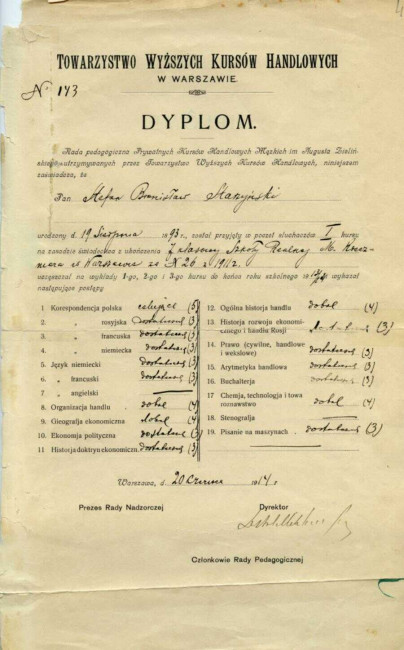 TOWARZYSTWO WYŻSZYCH KURSÓW HANDLOWYCH
W WARSZAWIE.
N. 143
DYPLOM.
Rada pedagogiczna Prywatnych Kursów Handlowych Męskich im Augusta Zieliń-
skiego utrzymywanych przez Towarzystwo Wyższych Kursów Handlowych, niniejszem
zaświadcza, że
Pan Stefan Bronisław Starzyński
urodzony d. 19 Sierpnia 1893 r. został przyjęty w poczet słuchaczów I kursu
na zasadzie świadectwa z ukończenia 7 klasowej Szkoły Realnej M.
w Warszawie za N 26 z 1912
uczęszczał na wykłady 1-go, 2-go i 3-go kursu do końca roku szkolnego i wykazał
następujące postępy
1 Korespondencja polska celując (5)
2 " rosyjska dostateczn (3)
3 " francuska dostateczn (3)
4 " niemiecka dostateczn (3)
5 Język niemiecki dostateczn (3)
6 " francuski dostateczn (3)
7 " angielski —
8 Organizacja handlu dobr (4)
9 Gieografja ekonomiczna dobr (4)
10 Ekonomja polityczna dostateczn (3)
11 Historja doktryn ekonomiczn. dostateczn (3)
12 Ogólna historja handlu dobr (4)
13 Historja rozwoju ekonomi-
cznego i handlu Rosji (3)
14 Prawo (cywilne, handlowe
i wekslowe) dostateczn (3)
15 Arytmetyka handlowa dostateczn (3)
16 Buchalterja dostateczn (3)
17 Chemja, technologja i towa
roznawstwo dobr (4)
18 Stenografja —
19 Pisanie na maszynach dostateczn (3)
Warszawa, d. 20 Czerwca 1914 r
Prezes Rady Nadzorczej
Dyrektor
Członkowie Rady Pedagogicznej